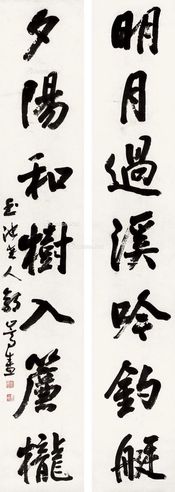 明月過溪吟釣艇
夕陽和樹入簾櫳
玉池老人郭嵩燾